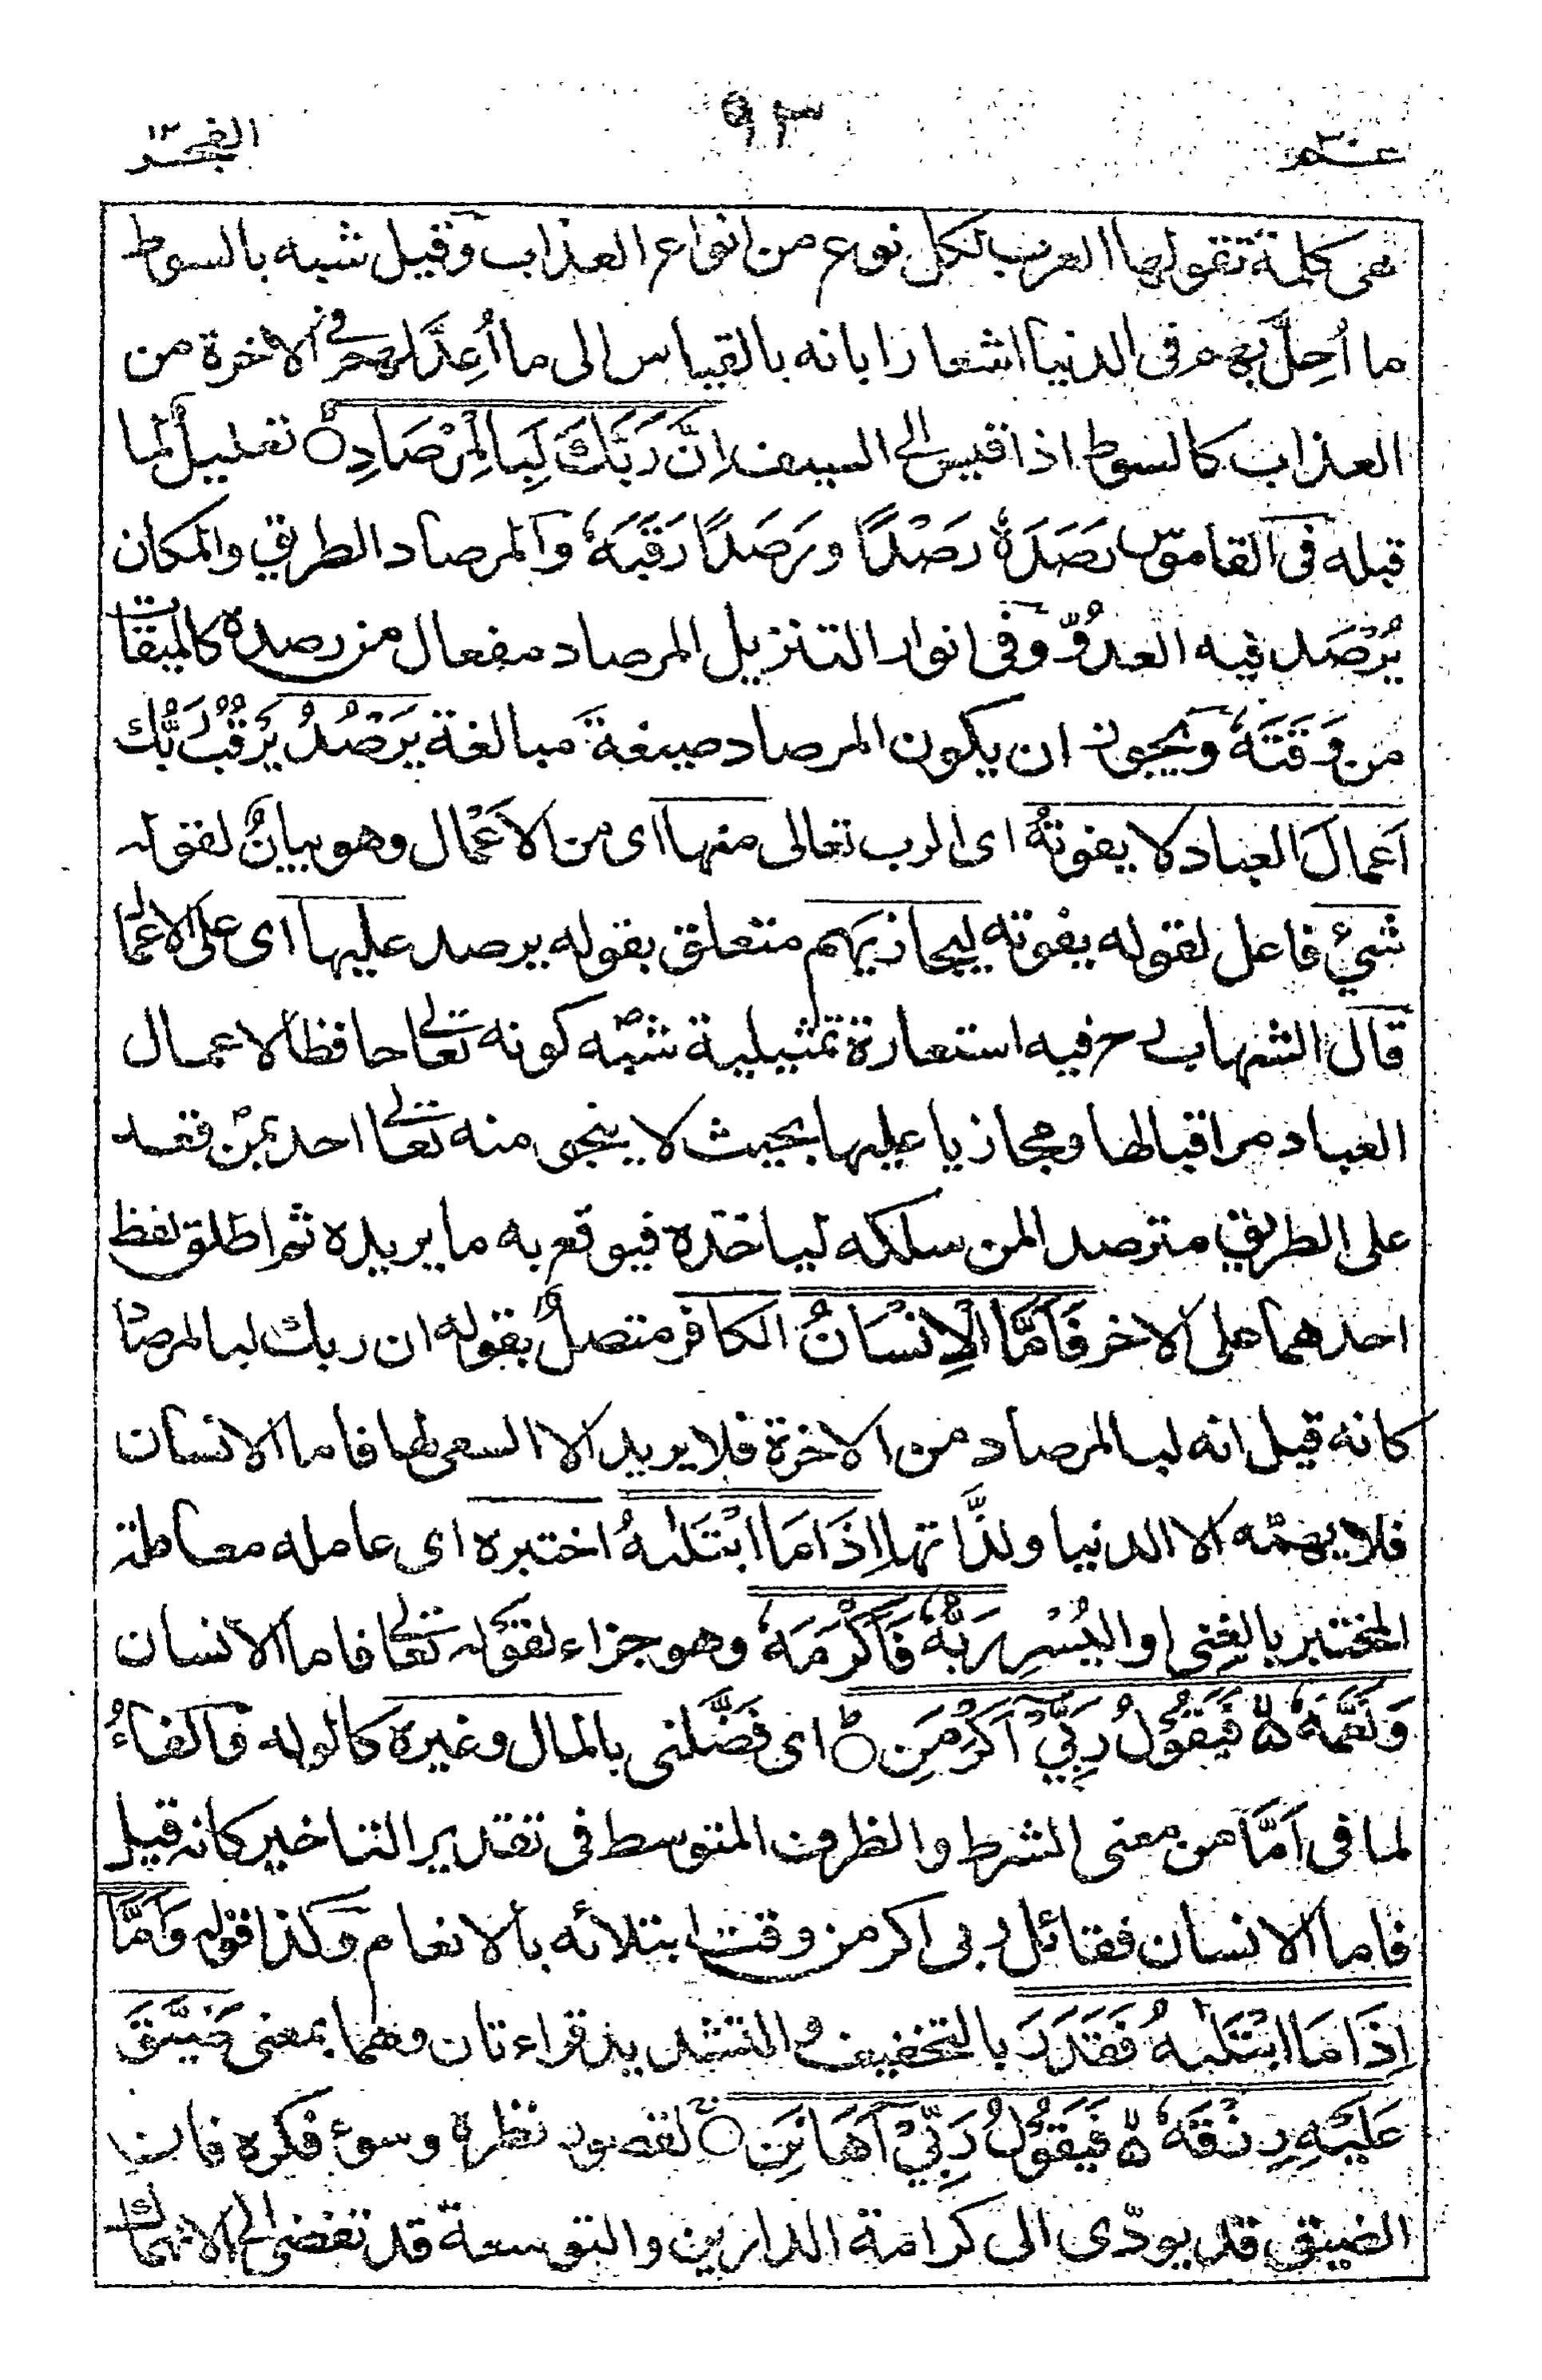 عم ٣٠
٩٣
الفجر ١٢
هى كلمة تقولها العرب لكل نوع من انواع العذاب وقيل شبه بالسوط
ما اُحِلَّ بهم فى الدنيا اشعارا بانه بالقياس الى ما اُعِدَّ لهم فى الاخرة من
العذاب كالسوط اذا قيس الى السيف اِنَّ رَبَّكَ لَبِالْمِرْصَادِ تعليلٌ لما
قبله فى القاموس رَصَدَهٗ رَصْدًا ورَصَدًا رَقَبَهٗ والمرصاد الطريق والمكان
يُرْصَد فيه العدوُّ وفى انوار التنزيل المرصاد مفعال من رصده كالميقات
من وَقَتَهٗ ويجوز ان يكون المرصاد صيغة مبالغة يَرْصُدُ يَرْقُبُ رَبُّك
اَعمالَ العباد لا يفوتهٗ اى الرب تعالى منها اى من الاَعْمال وهو بيانٌ لقوله
شَىْءٌ فاعل لقوله يفوته ليجازيهم متعلق بقوله يرصد عليها اى على الاعمال
قال الشهاب رح فيه استعارة تمثيلية شبّه كونه تعالى حافظا لاعمال
العباد مراقبا لها ومجازيا عليها بحيث لا ينجى منه تعالى احد بمن قعد
على الطريق مترصدا لمن سلكه لياخذه فيوقع به ما يريده ثم اطلق لفظ
احدهما على الاخر فَاَمَّا الْاِنْسَانُ الكافر متصلٌ بقوله ان ربك لبالمرصاد
كانه قيل انه لبالمرصاد من الاخرة فلا يريد الا السعى لها فاما الانسان
فلا يهمّه الا الدنيا ولذّاتها اِذَا مَا ابْتَلٰىهُ اختبره اى عامله معاملة
المختبر بالغِنى او اليُسْرِ رَبُّهٗ فَاَكْرَمَهٗ وهو جزاء لقوله تعالى فاما الانسان
وَنَعَّمَهٗ ۵ فَيَقُوْلُ رَبِّىْٓ اَكْرَمَنِ اى فَضَّلنى بالمال وغيره كالوله فالفاءُ
لما فى اَمَّا من معنى الشرط والظرف المتوسط فى تقدير التاخير كانه قيل
فاما الانسان فقائل ربى اكرمن وقت ابتلائه بالانعام وكذا قوله وَاَمَّا
اِذَا مَا ابْتَلٰىهُ فَقَدَرَ بالتخفيف والتشديد قراءتان وهما بمعنى ضَيَّقَ
عَلَيْهِ رِزْقَهٗ ۵ فَيَقُوْلُ رَبِّىْٓ اَهَانَنِ لقصور نظره وسوء فكره فان
الضيق قد يودّى الى كرامة الدارين والتوسعة قد تفضى الى الانهماك